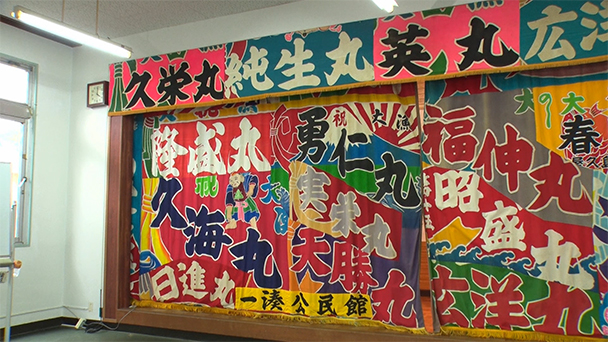 久栄丸
純生丸
英丸
広洋
隆盛丸
祝
久海丸
日進丸
祝
大漁
勇仁丸
実栄丸
天勝丸
一湊公民館
大の大
福伸丸
春
昭盛丸
広洋丸